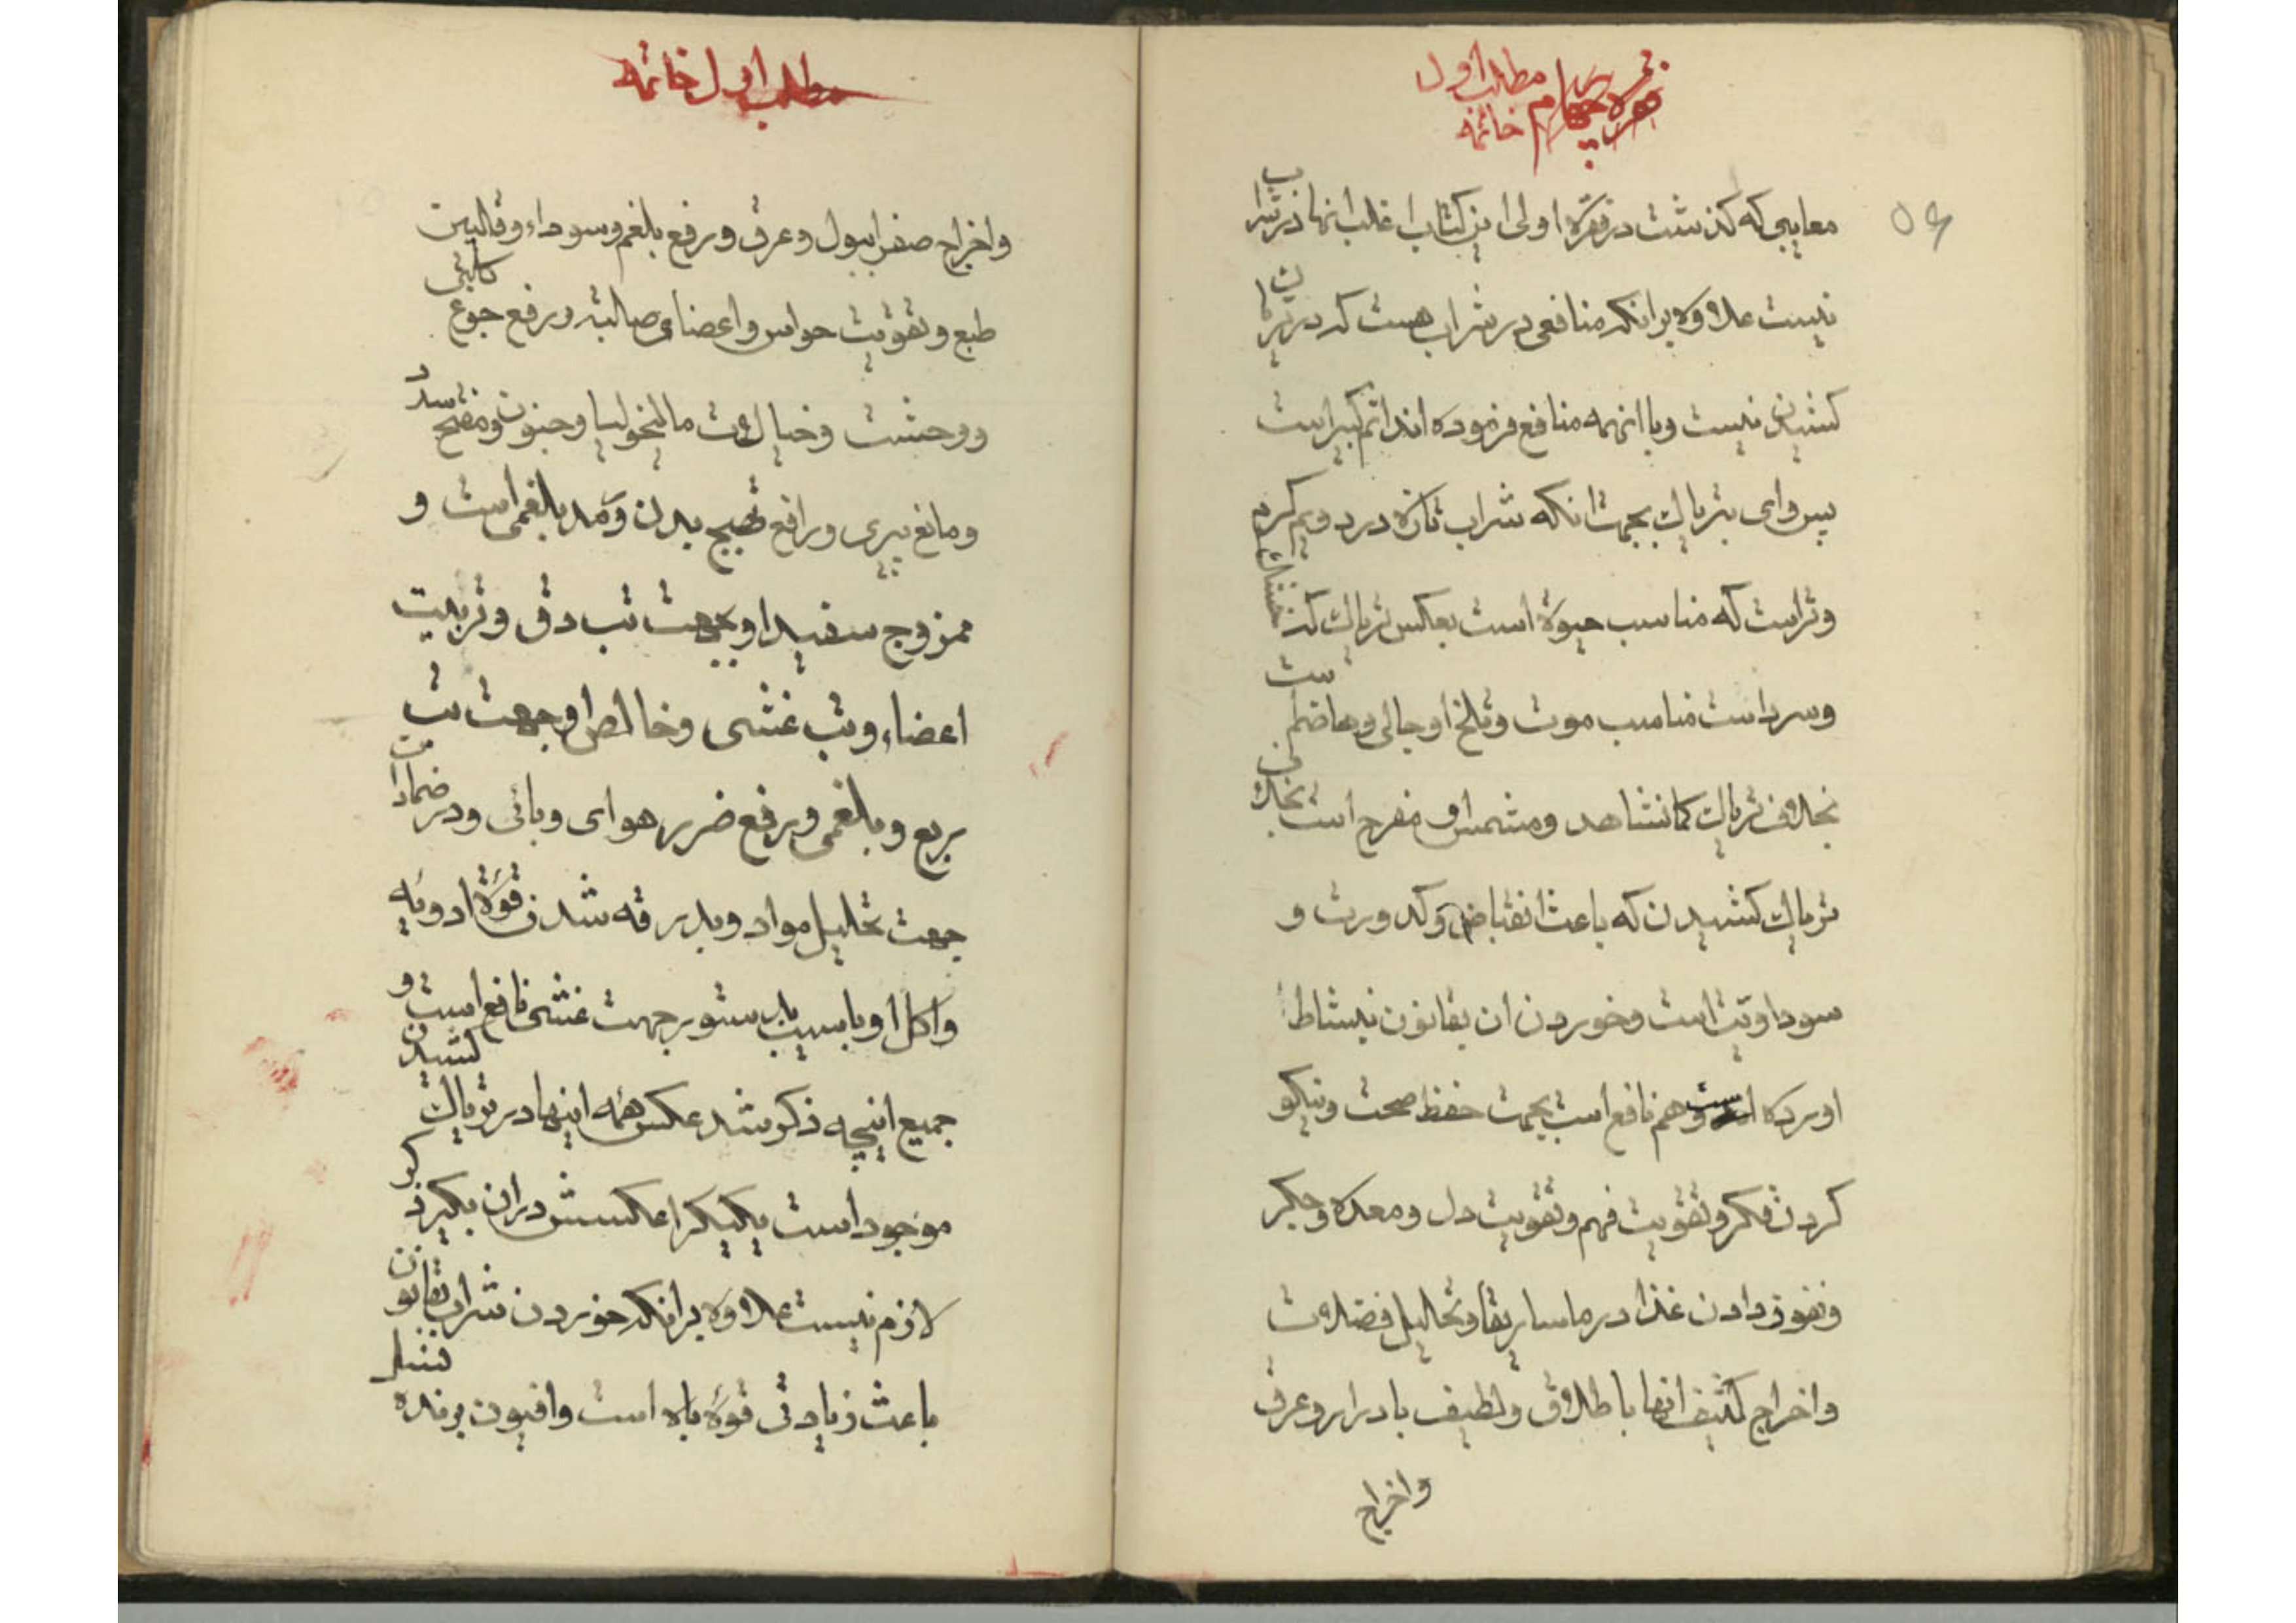 مطلب اول
خاتمه
معایبی که کذشت در فقره اولی این کتاب اغلب انها در شراب
نیست علاوه برانکه منافعی در شراب هست که در تریاک
کشیدن نیست و با انهمه منافع فرموده اند اثم کبیر است
پس وای بتریاک بجهت انکه شراب تازه درد ویم کرم
و تر است که مناسب حیوة است بعکس تریاک که خشک
و سرد است مناسب موت و تلخ او جالی و هاضم است
بخلاف تریاک کما نشاهد و مشمس او مفرح است بخلاف
تریاک کشیدن که باعث انقباض و کدورت و
سوداویت است و خوردن ان بقانون نیشاط
اورده است و هم نافع است بجهت حفظ صحت و نیکو
کردن فکر و تقویت فهم و تقویت دل و معده و جکر
و نفوذ دادن غذا در ماساریقا و تحلیل فضلات
و اخراج کثیف انها باطلاق و لطیف بادرار و عرق
و اخراج
مطلب اول خاتمه
و اخراج صفرا ببول و عرق و رفع بلغم و سوداء و تلیین
طبع و تقویت حواس و اعضای صالبه و رفع جوع کلبی
و وحشت و خیالات مالیخولیا و جنون و مفتح سدد
و مانع پیری و رافع بدن و بلغمی است و
ممزوج سفید او بجهت تب دق و تربیت
اعضاء و تب غشی و خالص او جهت تب
ربع و بلغمی و رفع ضرر هوای وبائی و در ضمادات
جهت تحلیل مواد و بدرقه شدن قوة ادویه
و اکل او با سیب بدستور جهت غشی نافع است و
جمیع اینچه ذکر شد عکس همه اینها در تریاک کشیدن
موجود است یکیکرا عکسش دران بکیر ذکر
لازم نیست علاوه برانکه خوردن شراب بقانون
باعث زیادتی قوة باه است و افیون برنده نسل